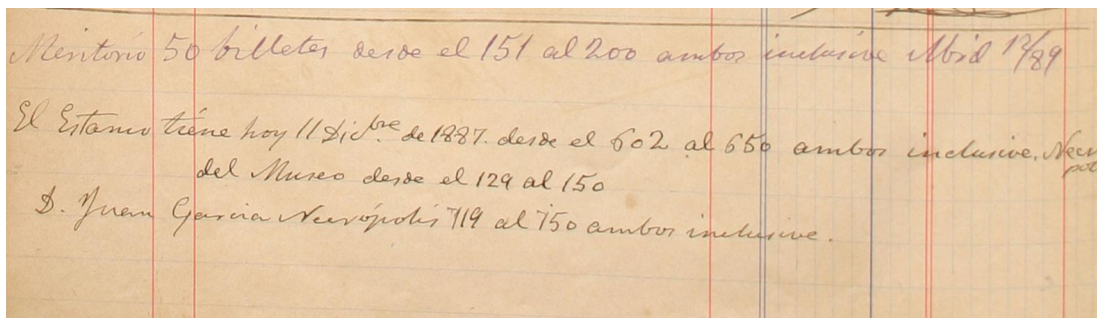 Meritorio 50 billetes desde el 151 al 200 ambos inclusive Abril 12/89
El Estanco tiene hoy 11 Dicbre de 1887. desde el 602 al 650 ambos inclusive. Necro
pol
del Museo desde el 129 al 150
D. Juan Garcia Necrópolis 719 al 750 ambos inclusive.